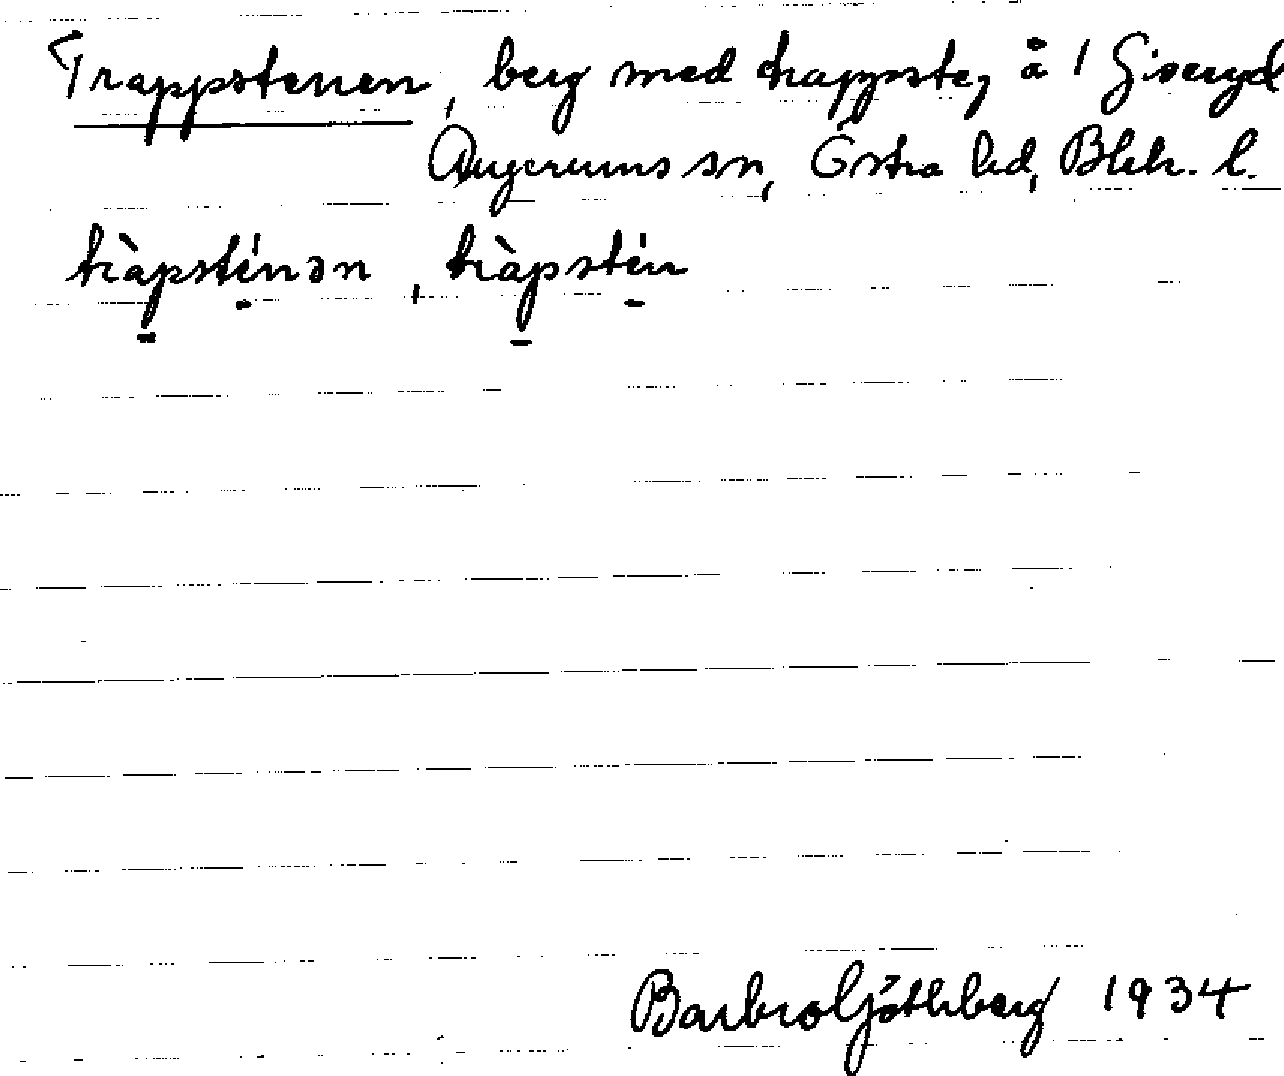 Trappstenen, berg med trappsteg å 1 Giseryd
Augerums sn, Östra hd, Blek. l.
tràpsténən, tràpstén
Barbro Göthberg 1934